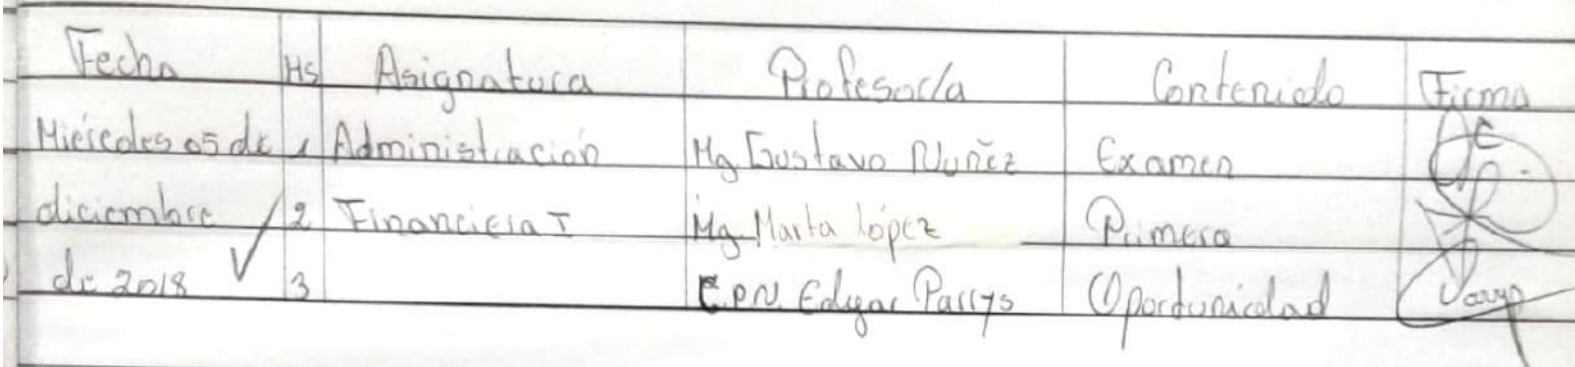 Fecha HS Asignatura Profesor/a Contenido Firma
Miércoles 05 de 1 Administración Mg Gustavo Nuñez Examen
diciembre 2 Financiera I Mg. Marta López Primera
de 2018 3 CPN. Edgar Parrys Oportunidad